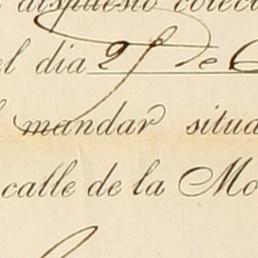 dispuesto colec
el dia 25 de
mandar situa
calle de la Mo